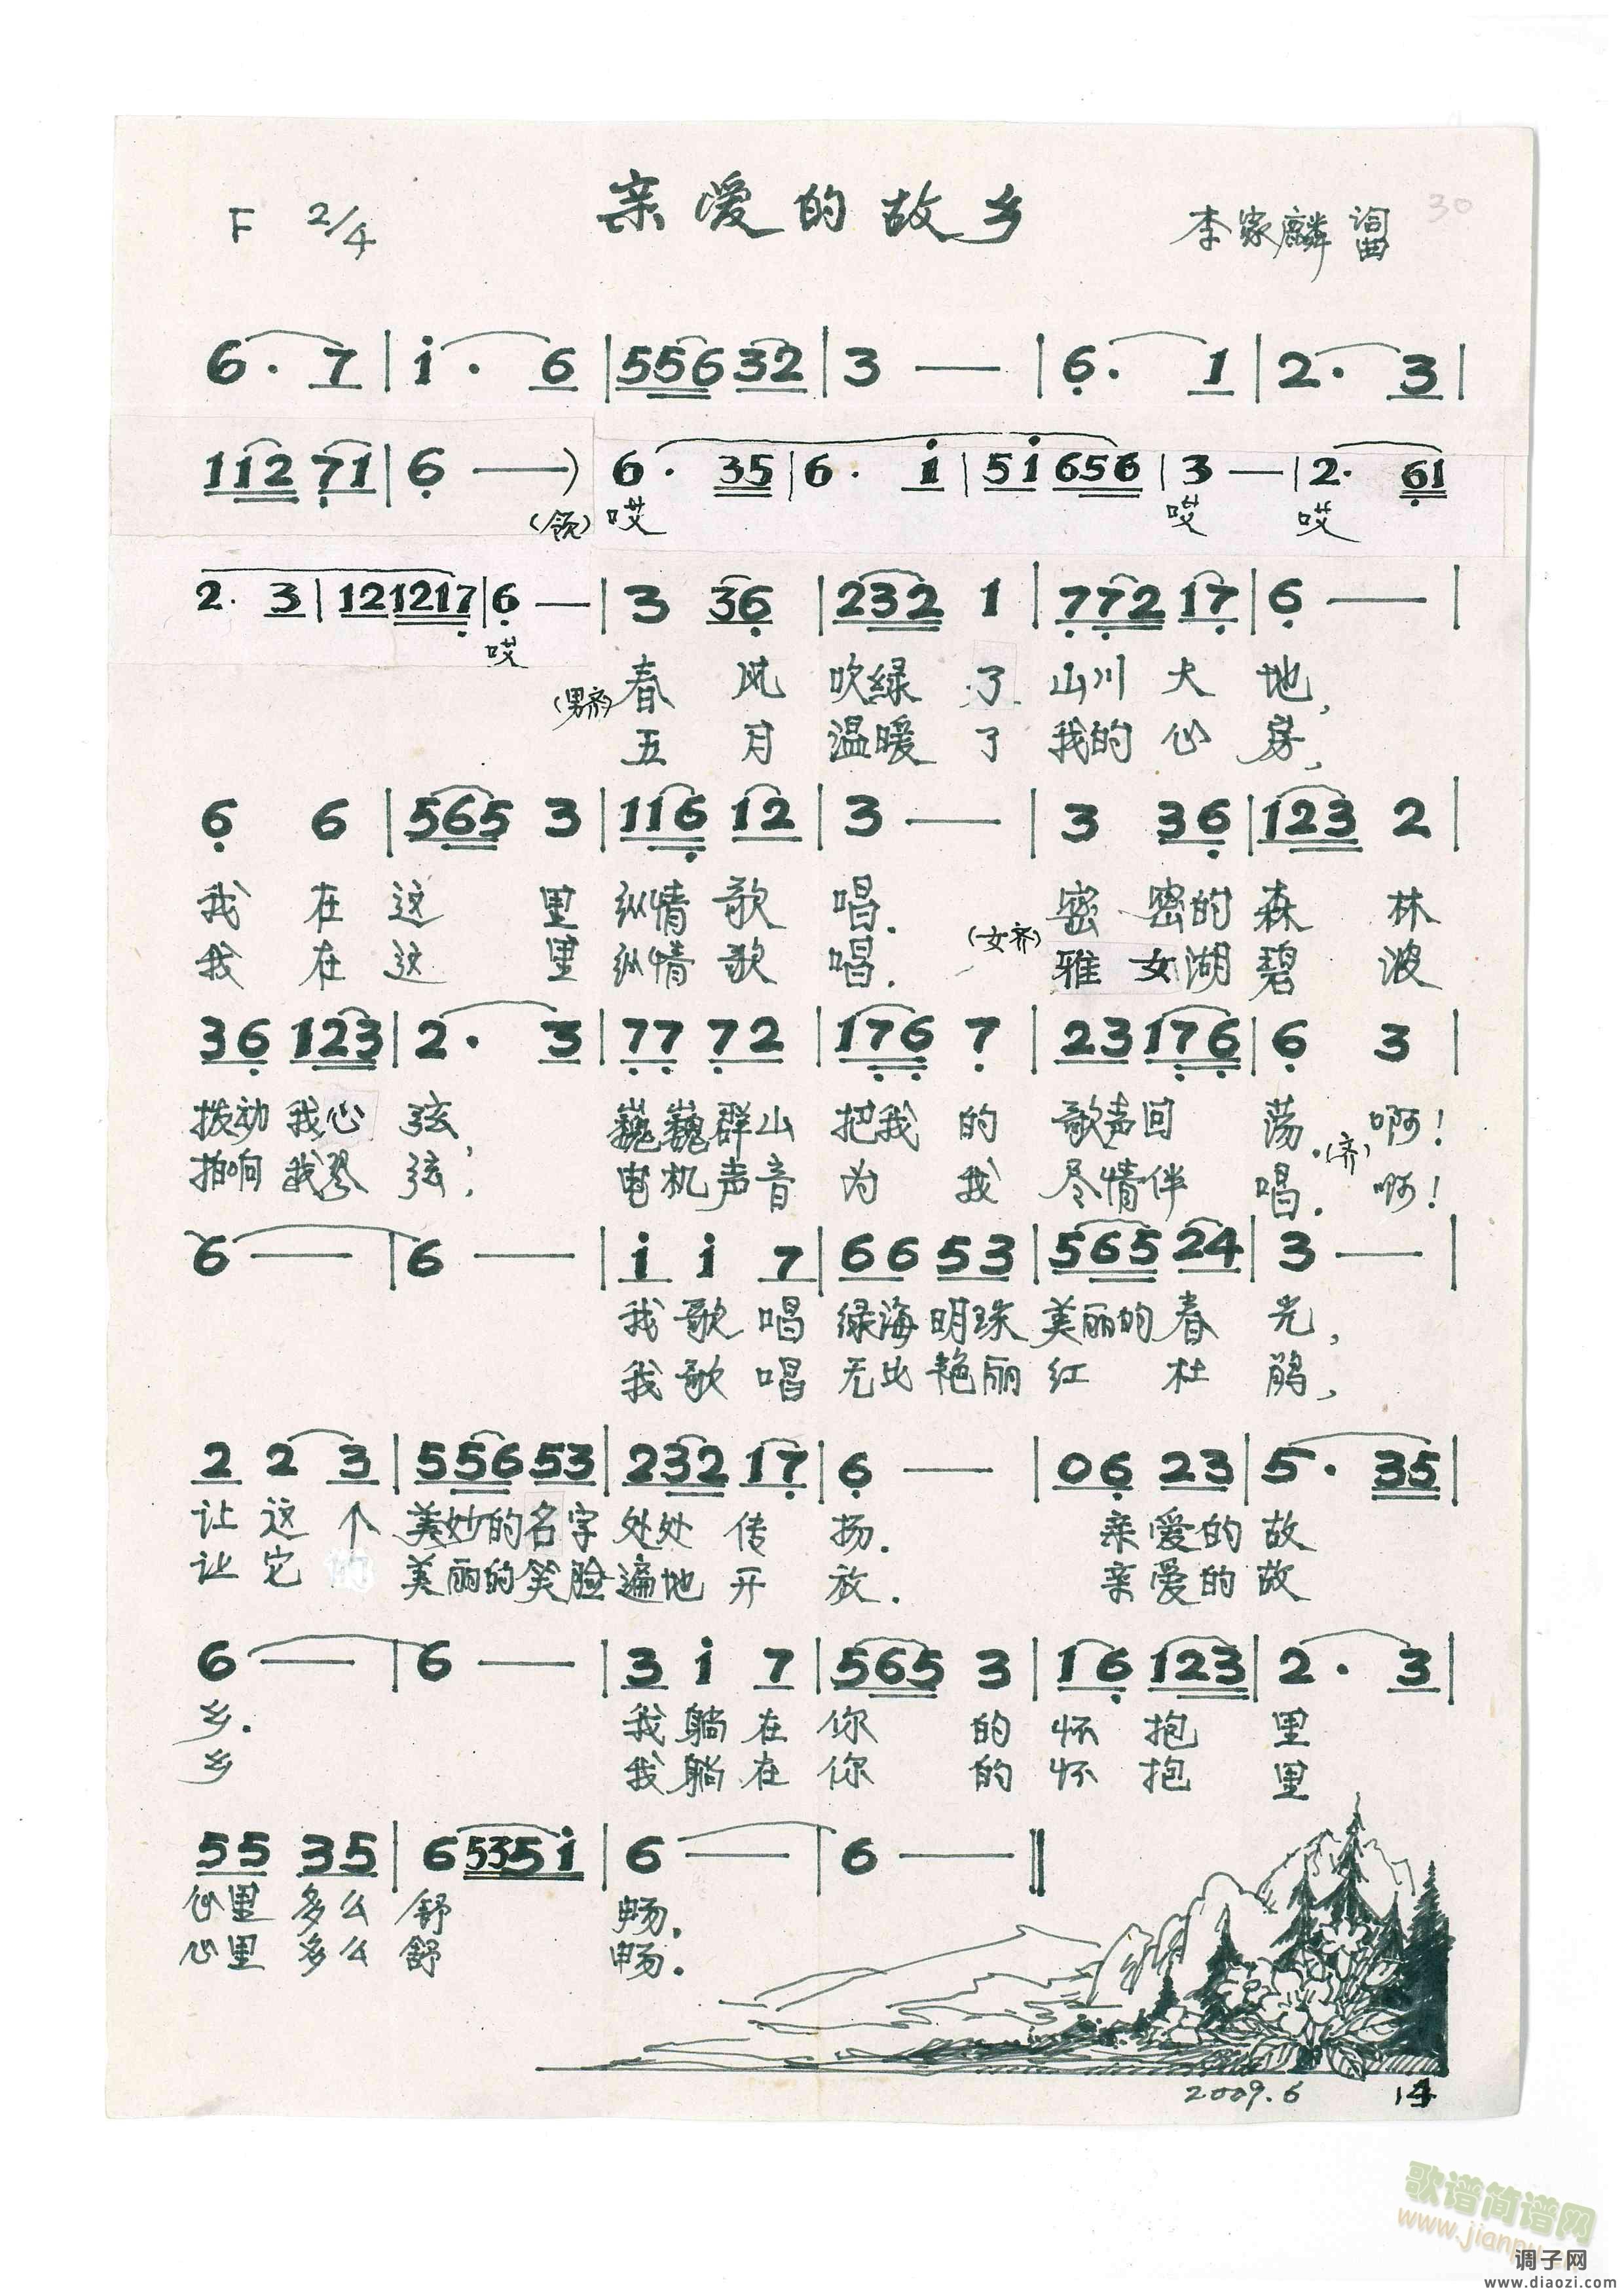 亲爱的故乡
F 2/4
李家麟 词曲
30
6· 7 | i· 6 | 556 32 | 3 — | 6· 1 | 2· 3 |
112 71 | 6 —) 6· 35 | 6· i | 5i 656 | 3 — | 2· 61
(领) 哎 哎 哎
2· 3 | 12 1217 | 6 — | 3 36 | 232 1 | 772 17 | 6 — |
哎
(男齐) 春 风 吹绿 了 山川 大 地,
五 月 温暖 了 我的 心 房,
6 6 | 565 3 | 116 12 | 3 — | 3 36 | 123 2 |
我 在 这 里 纵情 歌 唱. 密 密的 森 林
(女齐)
我 在 这 里 纵情 歌 唱. 雅 女湖 碧 波
36 123 | 2· 3 | 77 72 | 176 7 | 23 176 | 6 3 |
拨动 我心 弦, 巍巍群山 把我 的 歌声回 荡. (齐) 啊!
拍响 我琴 弦, 电机声音 为 我 尽情伴 唱. 啊!
6 — | 6 — | i i 7 | 66 53 | 565 24 | 3 — |
我 歌 唱 绿海 明珠 美丽的 春 光,
我 歌 唱 无比 艳丽 红 杜 鹃,
2 2 3 | 556 53 | 232 17 | 6 — | 06 23 | 5· 35 |
让 这 个 美妙的 名字 处处 传 扬. 亲 爱的 故
让 它 的 美丽的 笑脸 遍地 开 放. 亲 爱的 故
6 — | 6 — | 3 i 7 | 565 3 | 16 123 | 2· 3 |
乡. 我 躺 在 你 的 怀 抱 里
乡 我 躺 在 你 的 怀 抱 里
55 35 | 6 535i | 6 — | 6 — ‖
心里 多么 舒 畅.
心里 多么 舒 畅.
2009.6 14
歌谱简谱网
www.jianpu.cn
调子网
www.diaozi.com